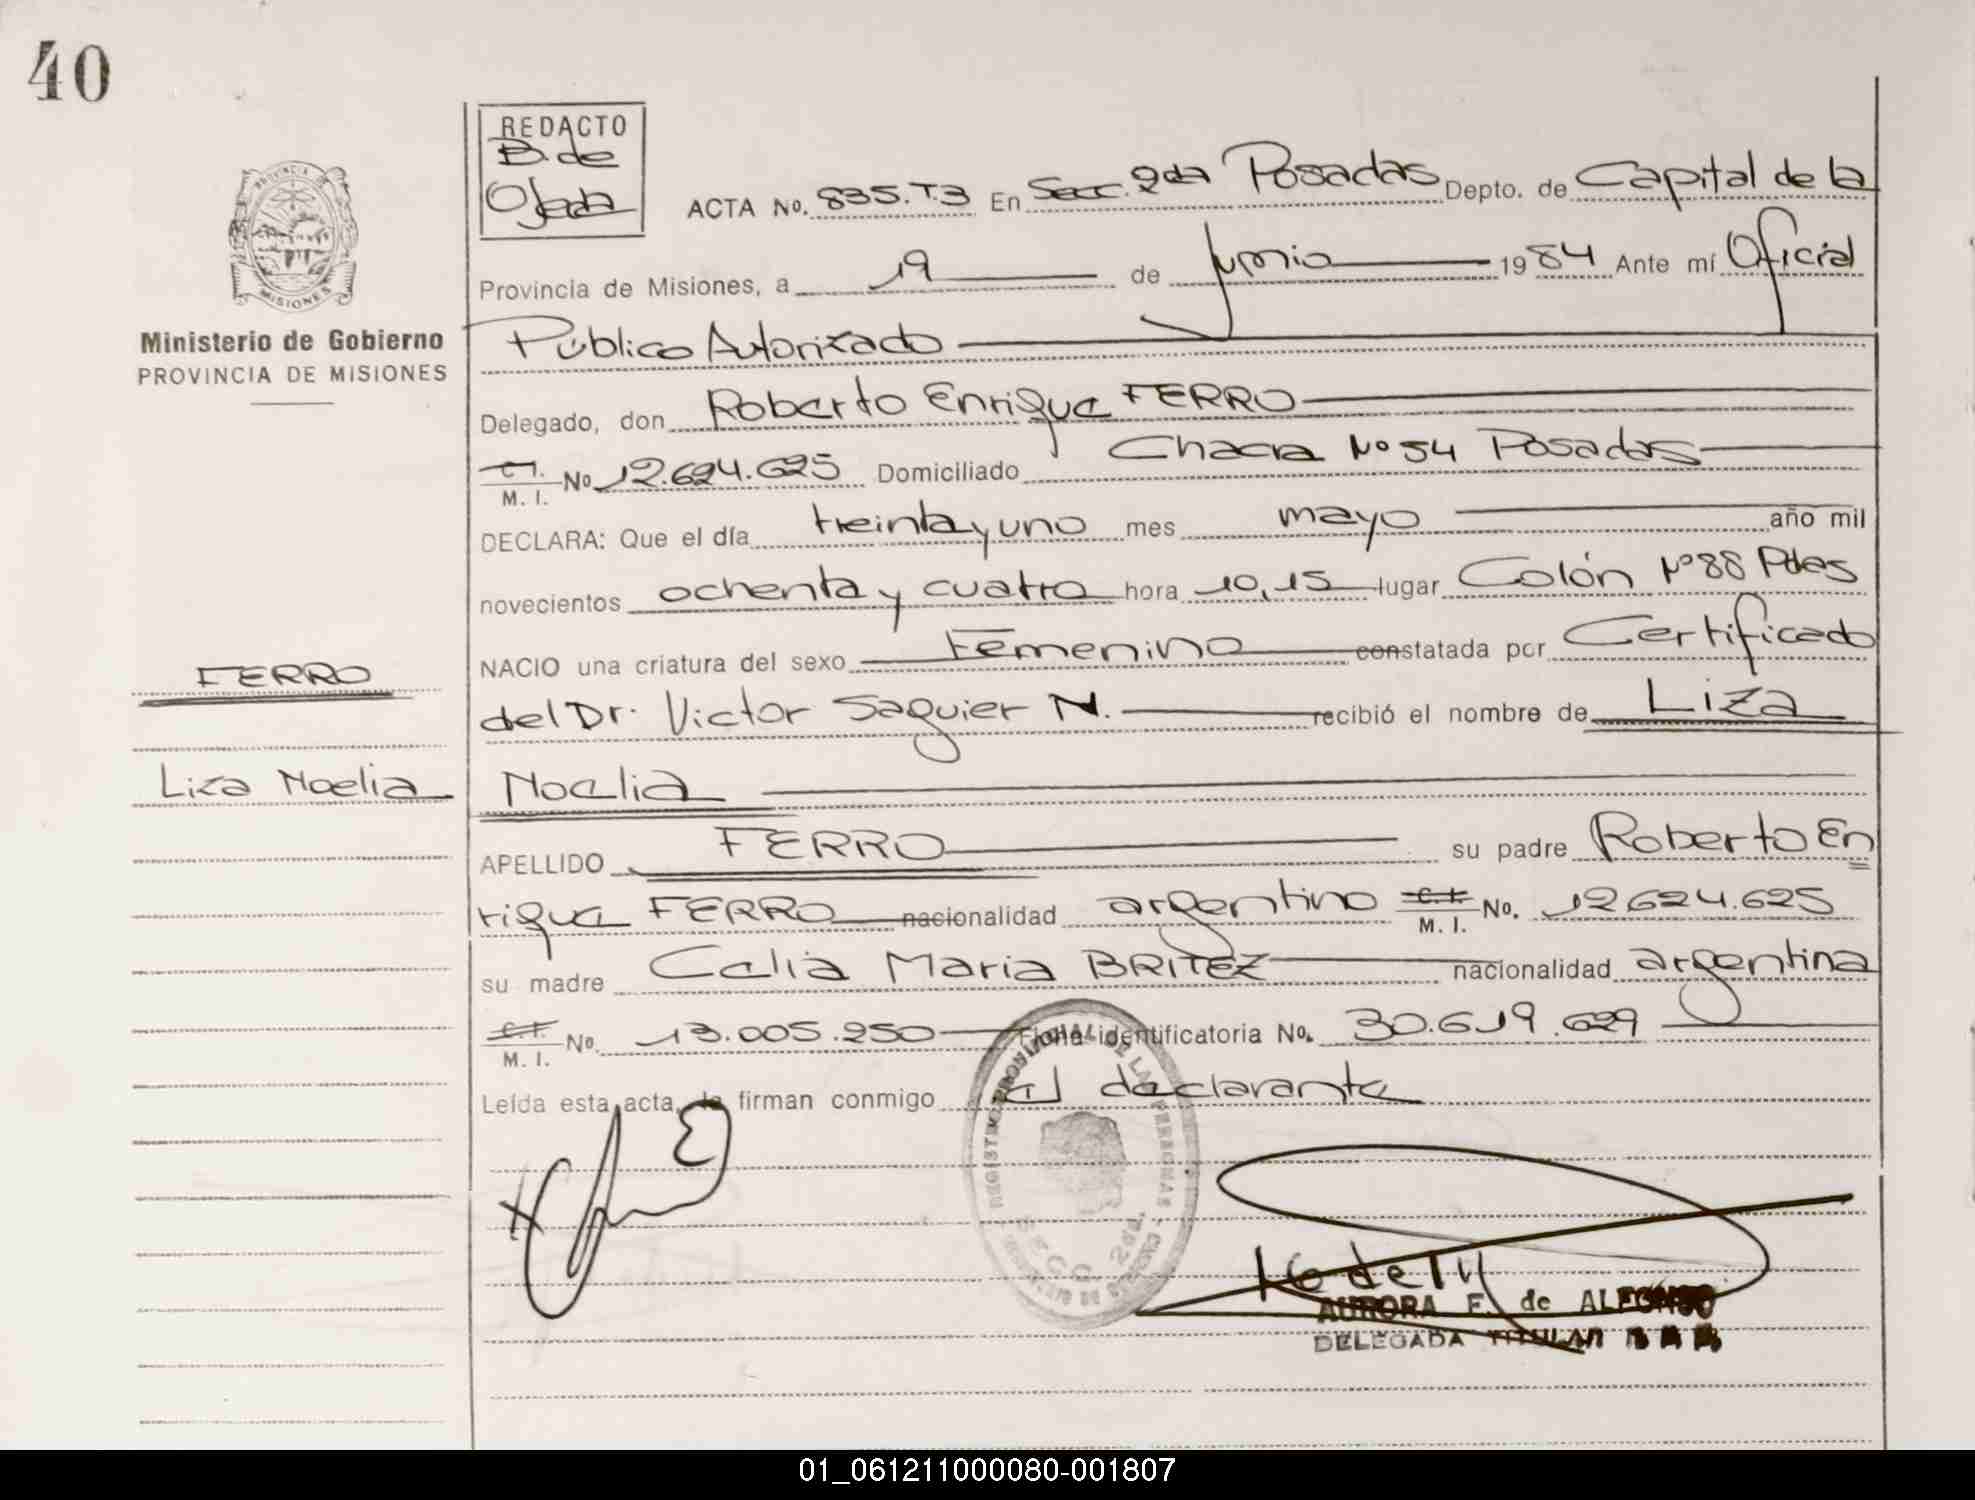 40
REDACTO
B. de
Ojeda
ACTA No. 835.T.3 En Secc. 2da Posadas Depto. de Capital de la
Provincia de Misiones, a 19 de junio 1984 Ante mí Oficial
Público Autorizado
Delegado, don Roberto Enrique FERRO
C.I. M. I. No 12.624.625 Domiciliado Chacra Nº 54 Posadas
DECLARA: Que el día treinta y uno mes mayo año mil
novecientos ochenta y cuatro hora 10,15 lugar Colón Nº 88 Pdas
NACIO una criatura del sexo Femenino constatada por Certificado
del Dr. Victor Saguier N. recibió el nombre de Liza
Noelia
APELLIDO FERRO su padre Roberto En
rique FERRO nacionalidad argentino C.I. M. I. No. 12.624.625
su madre Celia Maria BRITEZ nacionalidad argentina
C.I. M. I. No. 13.005.250 Ficha identificatoria No. 30.619.629
Leída esta acta, la firman conmigo el declarante
PROVINCIA
MISIONES
Ministerio de Gobierno
PROVINCIA DE MISIONES
FERRO
Liza Noelia
REGISTRO PROVINCIAL DE LAS PERSONAS
SECC. 2da.
AURORA F. de ALFONSO
DELEGADA TITULAR
01_061211000080-001807